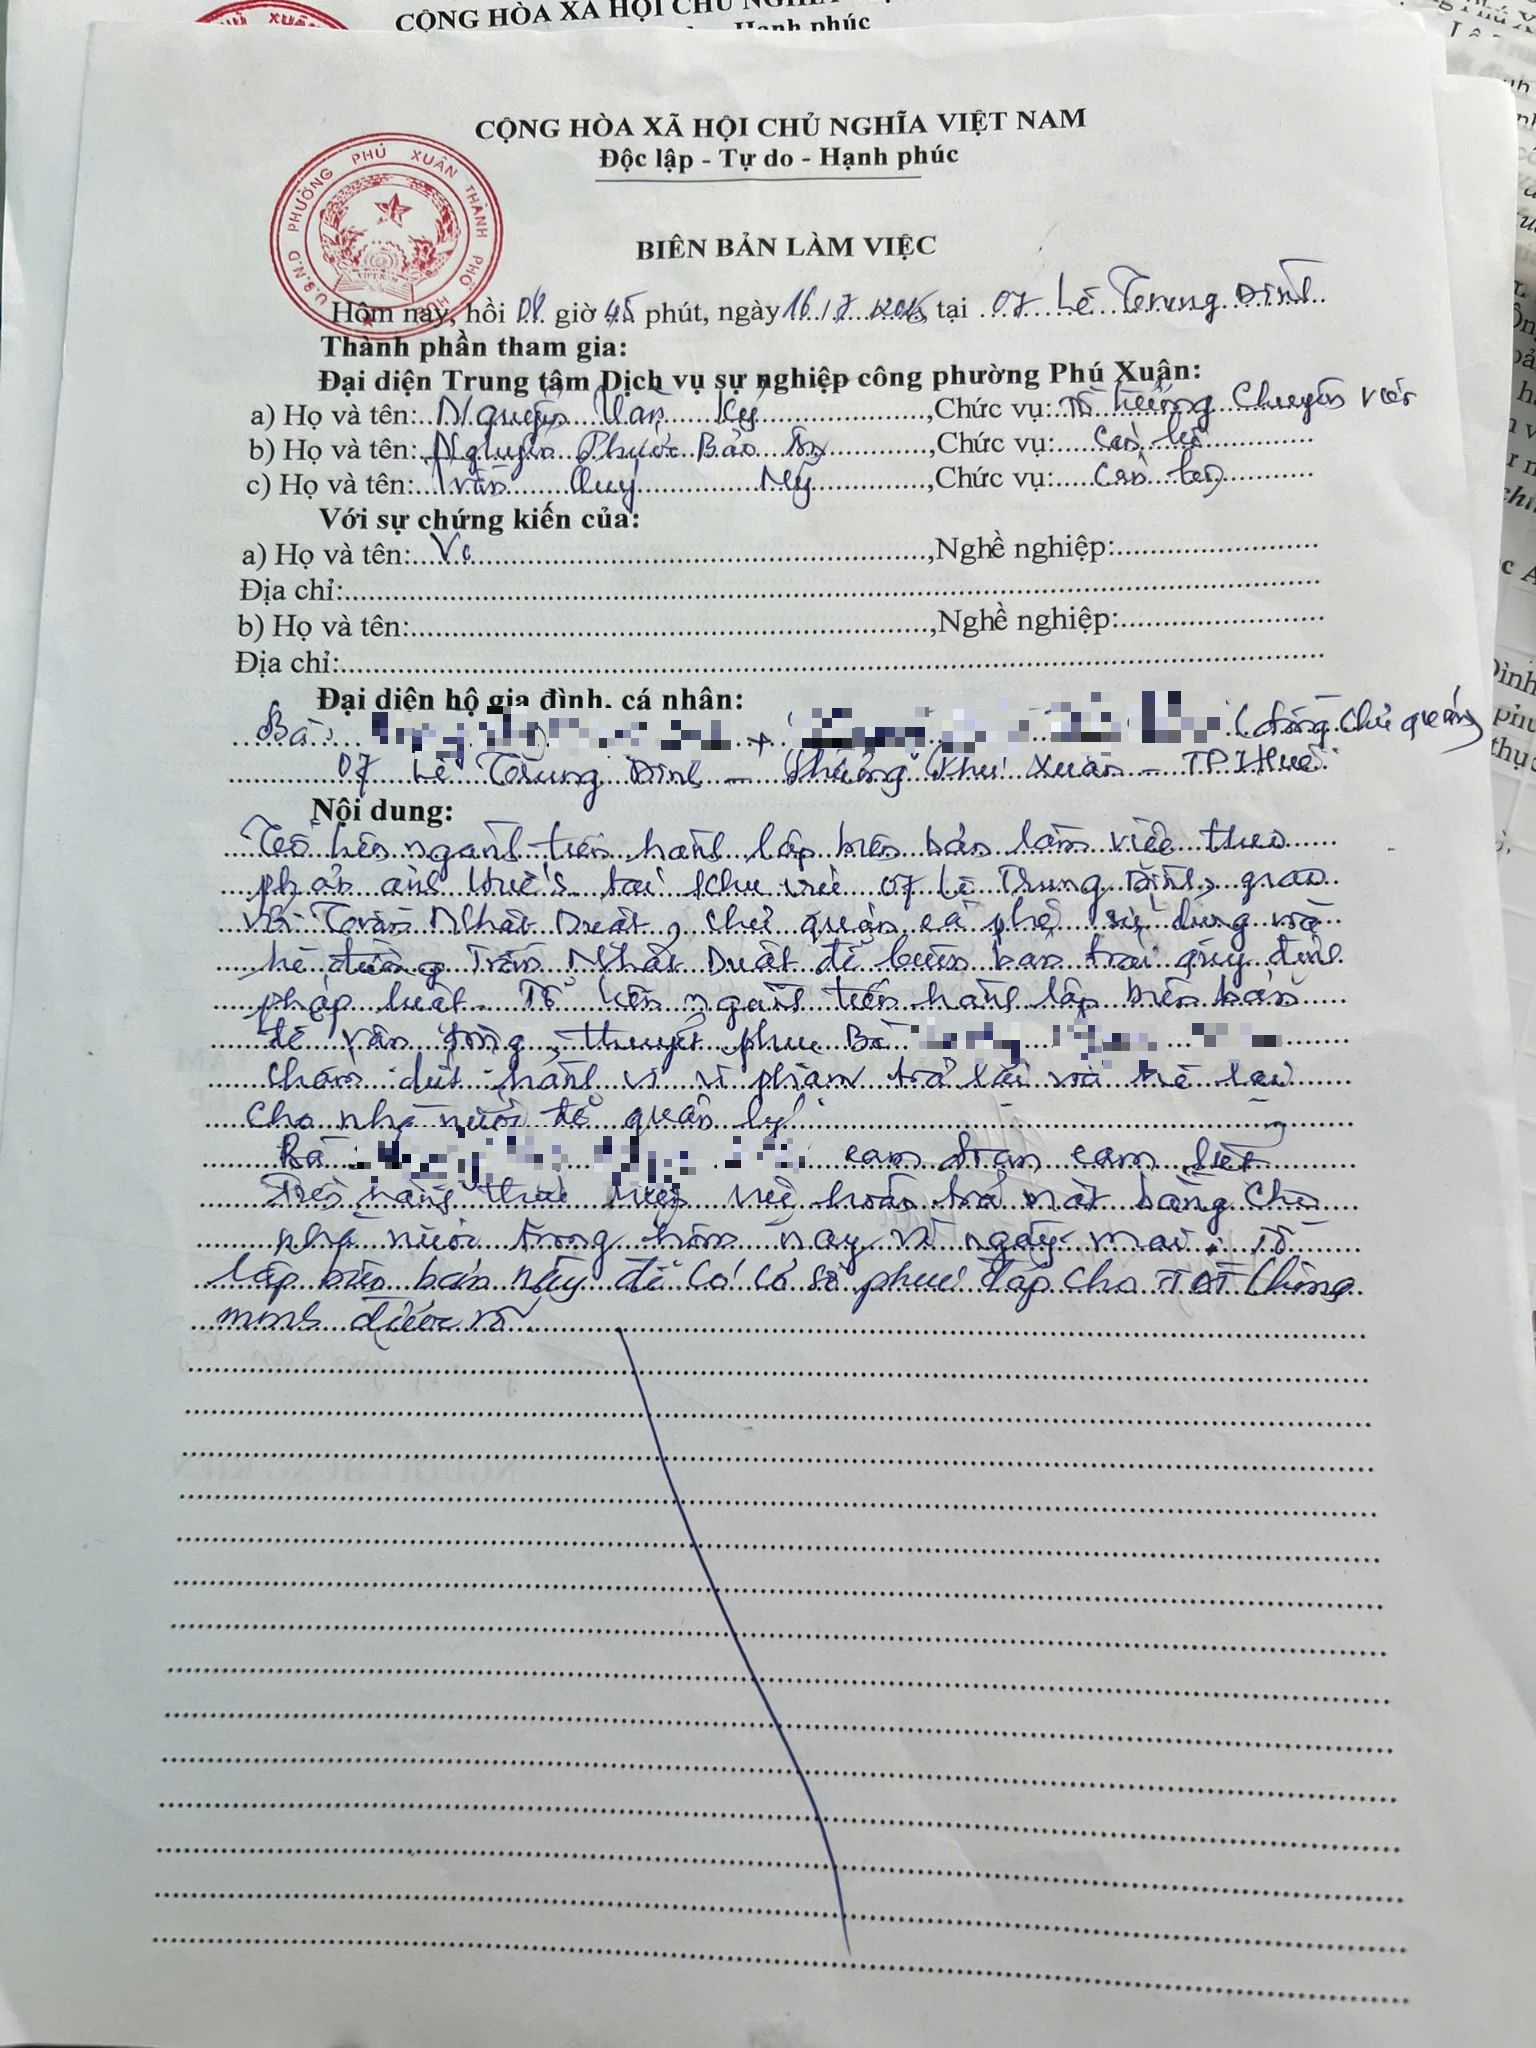 CỘNG HÒA XÃ HỘI CHỦ NGHĨA
Hạnh phúc
CỘNG HÒA XÃ HỘI CHỦ NGHĨA VIỆT NAM
Độc lập - Tự do - Hạnh phúc
U.B.N.D PHƯỜNG PHÚ XUÂN THÀNH PHỐ HUẾ
BIÊN BẢN LÀM VIỆC
Hôm nay, hồi 08 giờ 45 phút, ngày 16/7, tại 07 Lê Trung Đình
Thành phần tham gia:
Đại diện Trung tâm Dịch vụ sự nghiệp công phường Phú Xuân:
a) Họ và tên: Nguyễn Văn Ký, Chức vụ: Tổ trưởng Chuyên viên
b) Họ và tên: Nguyễn Phước Bảo, Chức vụ: Cán bộ
c) Họ và tên: Trần Quý Mỹ, Chức vụ: Cán bộ
Với sự chứng kiến của:
a) Họ và tên:, Nghề nghiệp:
Địa chỉ:
b) Họ và tên:, Nghề nghiệp:
Địa chỉ:
Đại diện hộ gia đình, cá nhân:
Bà: + (đồng chủ quán)
07 Lê Trung Đình - Phường Phú Xuân - TP Huế
Nội dung:
Tổ liên ngành tiến hành lập biên bản làm việc theo
phản ánh Huế-S tại khu vực 07 Lê Trung Đình, giao
với Trần Nhật Duật, chủ quán cà phê sử dụng vỉa
hè đường Trần Nhật Duật để buôn bán trái quy định
pháp luật. Tổ liên ngành tiến hành lập biên bản
để vận động, thuyết phục Bà
chấm dứt hành vi vi phạm trả lại vỉa hè lại
cho nhà nước để quản lý.
Bà cam đoan cam kết
tiến hành hoàn trả mặt bằng cho
nhà nước trong hôm nay và ngày mai. Tổ
lập biên bản này để có cơ sở phúc đáp cho
minh được rõ.